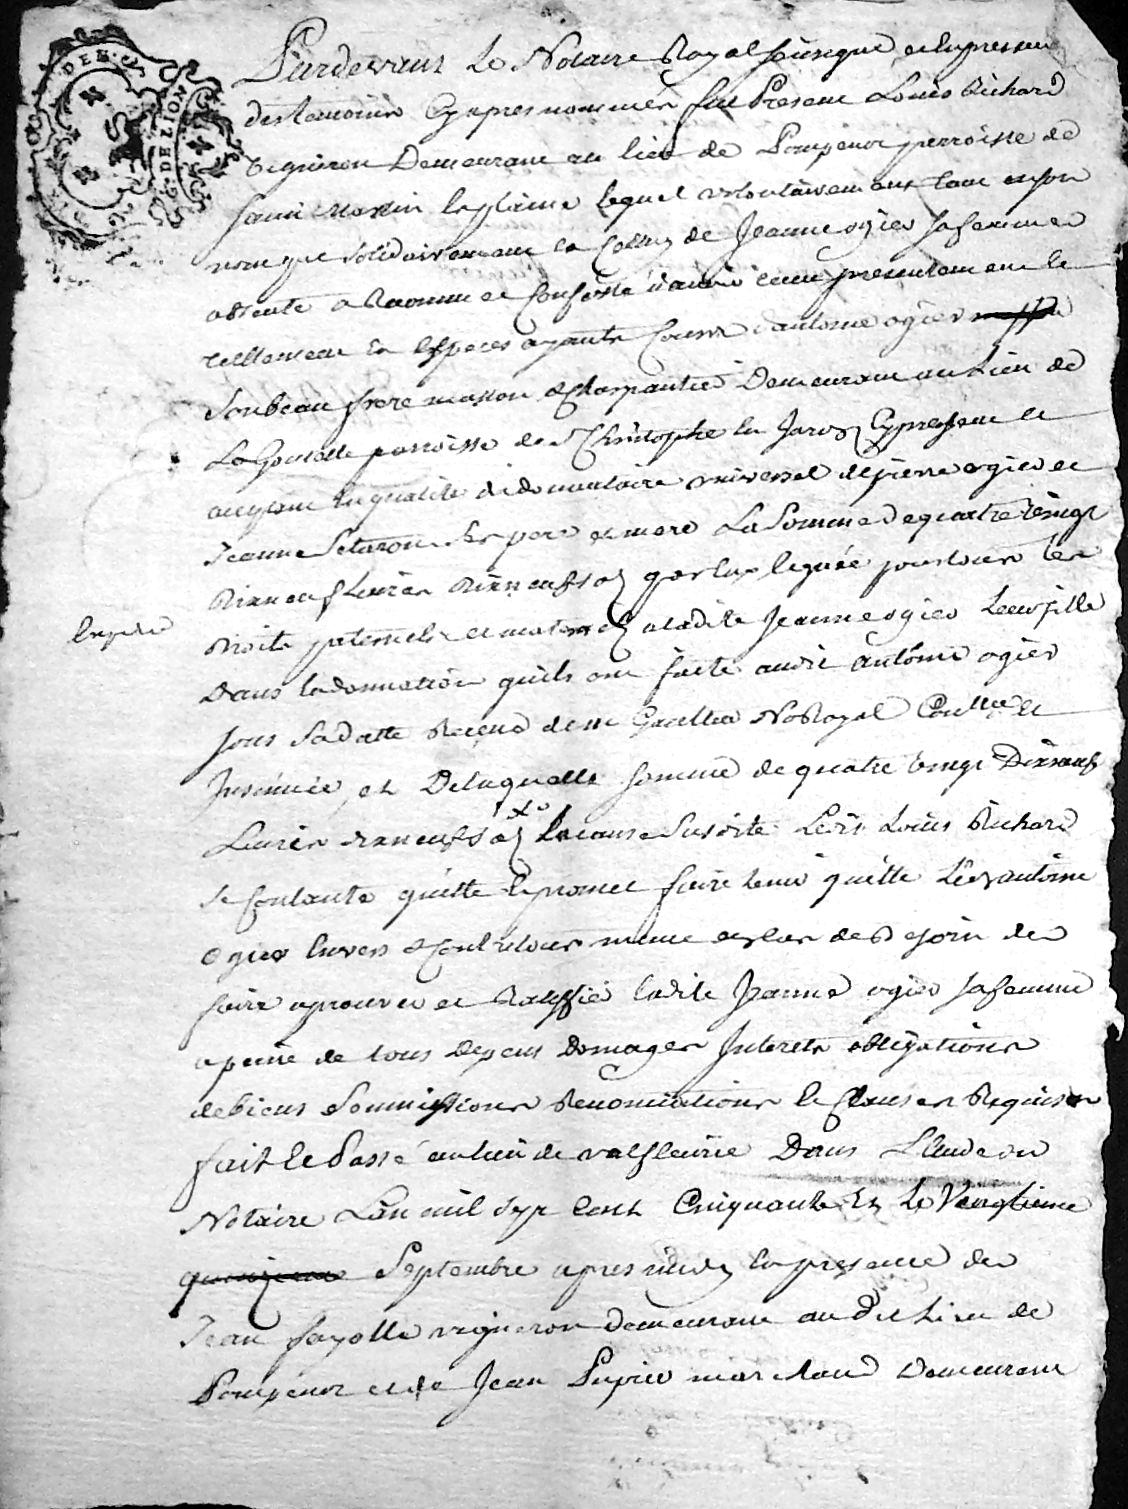 DEN
G. DE LION
Pardevant Le Notaire Royal soussigné et En presence
des temoins Cy apres nommés fut Present Louis Richard
vigneron Demeurant au lieu de Pompenor parroisse de
saint Martin la plaine lequel volontairement tant en son
nom que solidairement de Jeanne ogier sa femme
absente a Reconnu et Confessé d'avoir receu presentement
reellement En Especes ayants Cours d'antoine ogier
son beau frere masson & Charpantier Demeurant au Lieu de
La Goutelle parroisse de St Christophle En Jarez Cy present et
aceptant En qualité de donnataire universel de pierre ogier et
Jeanne ses pere et mere La Somme de quatre vingt
Dixneuf Livres Dixneuf sols par Eux leguée pour tous les
Droits paternels et maternels a ladite Jeanne ogier Leur fille
Dans la donnation qu'ils ont faite audit antoine ogier
sous sa datte Receue de me No Royal Conllée et
Insinuée, et De laquelle somme de quatre vingt Dixneuf
Livres dixneuf sols La cause susdite Ledit Louis Richard
se Contante quitte Et promet faire tenir quitte Ledt antoine
ogier Envers & Contre tous meme En Cas de Besoin de
faire aprouver et Ratiffier ladite Jeanne ogier sa femme
a peine de tous Depens Domages Interets obligations
de biens soumissions Renonciations Et Clauses Requises
fait Et Passé au lieu de valfleurie Dans L'Etude du
Notaire L'an mil sept Cent Cinquante Et Le Vingtieme
Septembre apres midy En presence de
Jean fayolle vigneron Demeurant audit Lieu de
Pompenor et de Jean Pupier marchand Demeurant